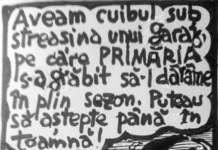 Aveam cuibul sub
streașina unui garaj,
pe care PRIMĂRIA
s-a grăbit să-l dărâme
în plin sezon. Puteau
să aștepte până în
toamnă!